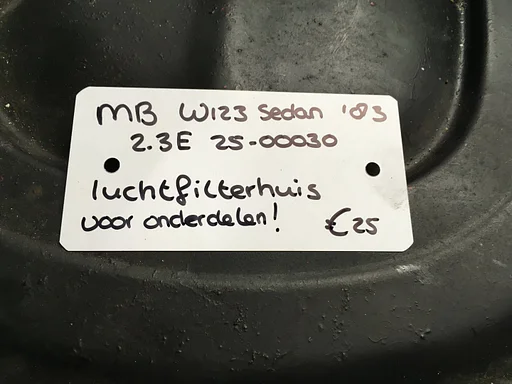 MB W123 Sedan '83
2.3E 25-00030
luchtfilterhuis
voor onderdelen!
€25